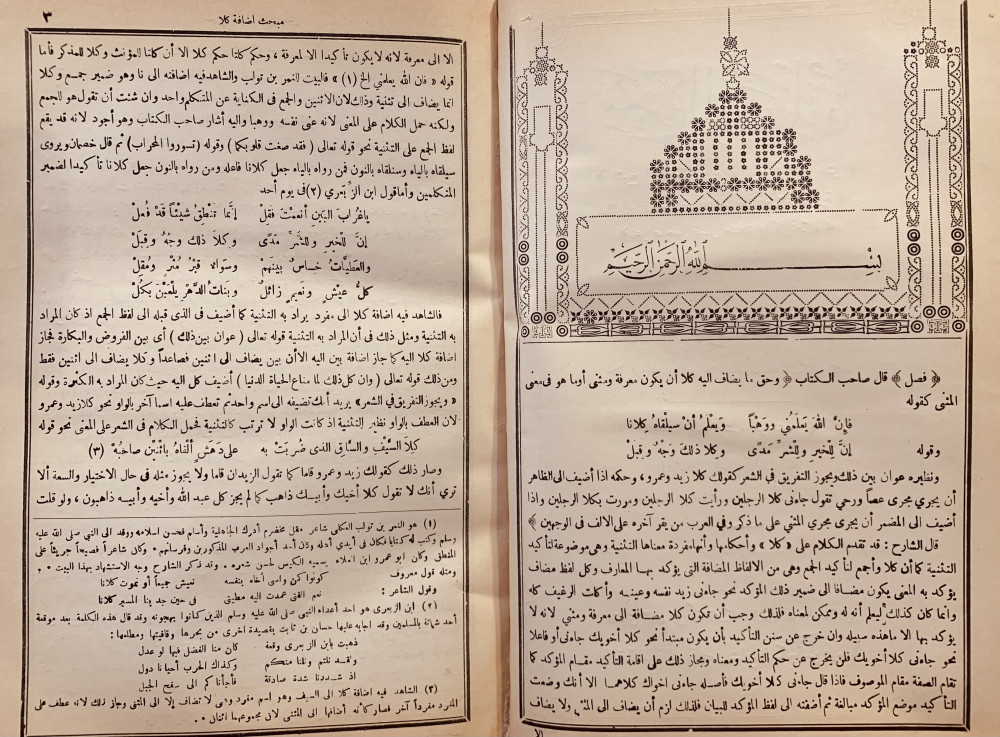 بسم الله الرحمن الرحيم
﴿ فصل ﴾ قال صاحب الكتاب ﴿ وحق ما يضاف اليه كلا أن يكون معرفة ومثنى أوما هو فى معنى
المثنى كقوله
فإنَّ اللهَ يَعْلَمُنِي وَوَهْبًا وَيَعْلَمُ أنْ سيلقاهُ كِلانا
وقوله إنَّ للْخيرِ وللْشرِّ مَدًى وكلا ذلكَ وَجْهٌ وقبلْ
ونظيره عوان بين ذلك ويجوز التفريق في الشعر كقولك كلا زيد وعمرو، وحكمه اذا أضيف الى الظاهر
أن يجري مجرى عصاً ورحي تقول جاءنى كلا الرجلين ورأيت كلا الرجلين ومررت بكلا الرجلين واذا
أضيف الى المضمر أن يجرى مجري المثني على ما ذكر وفي العرب من يقر آخره على الالف فى الوجهين ﴾
قال الشارح : قد تقدم الكلام على « كلا » وأحكامها وأنها مفردة معناها التثنية وهى موضوعة لتأكيد
التثنية كما أن كلا وأجمع لتأكيد الجمع وهى من الالفاظ المضافة التى يؤكد بها المعارف وكل لفظ مضاف
يؤكد به المعنى يكون مضافا الى ضمير ذلك المؤكد نحو جاءنى زيد نفسه وعينه وأكلت الرغيف كله
وانما كان كذلك ليعلم أنه له وممكن لمعناه فلذلك وجب أن تكون كلا مضافة الى معرفة ومثنى لانه لا
يؤكد بها الا ما هذه سبيله وان خرج عن سنن التأكيد بأن يكون مبتدأ نحو كلا خويك جاءنى أو فاعلا
نحو جاءنى كلا أخويك فلن يخرج عن حكم التأكيد ومعناه ومجاز ذلك على اقامة التأكيد مقام المؤكد كما
تقام الصفة مقام الموصوف فاذا قال جاءنى كلا أخويك فأصله جاءنى اخواك كلاهما الا أنك وضعت
التأكيد موضع المؤكد مبالغة ثم أضفته الى لفظ المؤكد للبيان فلذلك لزم أن يضاف الى المثنى ولا يضاف
الا
مبحث اضافة كلا ٣
الا الى معرفة لانه لا يكون تأكيدا الا لمعرفة ، وحكم كلتا حكم كلا الا أن كلتا للمؤنث وكلا للمذكر فأما
قوله « فان الله يعلمني الخ (١) » فالبيت للنمر بن تولب والشاهد فيه اضافته الى نا وهو ضمير جمع وكلا
انما يضاف الى تثنية وذلك لان الاثنين والجمع فى الكناية عن المتكلم واحد وان شئت أن تقول هو للجمع
ولكنه حمل الكلام على المعنى لانه عنى نفسه ووهبا واليه أشار صاحب الكتاب وهو أجود لانه قد يقع
لفظ الجمع على التثنية نحو قوله تعالى ( فقد صغت قلوبكما ) وقوله ( تسوروا المحراب ) ثم قال خصمان ويروى
سيلقاه بالياء وسنلقاه بالنون فمن رواه بالياء جعل كلانا فاعله ومن رواه بالنون جعل كلانا تأكيدا لضمير
المتكلمين وأما قول ابن الزبعري (٢) فى يوم أحد
ياغُرابَ البَينِ أنعمْتَ فقلْ إنَّما تنطِقُ شيئًا قدْ فُعلْ
إنَّ للْخيرِ وللشرِّ مَدًى وكلا ذلك وجْهٌ وقبَلْ
والعَطيَّاتُ خِساسٌ بينَهمْ وسواءٌ قبرُ مُثْرٍ ومُقلْ
كلُّ عيْشٍ ونَعيمٍ زائلٌ وبناتُ الدَّهرِ يلْعَبْنَ بكلْ
فالشاهد فيه اضافة كلا الى مفرد يراد به التثنية كما أضيف فى الذى قبله الى لفظ الجمع اذ كان المراد
به التثنية ومثل ذلك فى أن المراد به التثنية قوله تعالى ( عوان بين ذلك ) أى بين الفروض والبكارة فجاز
اضافة كلا اليه كما جاز اضافة بين اليه الا أن بين يضاف الى اثنين فصاعدا وكلا يضاف الى اثنين فقط
ومن ذلك قوله تعالى ( وان كل ذلك لما متاع الحياة الدنيا ) أضيف كل اليه حيث كان المراد به الكثرة وقوله
« ويجوز التفريق في الشعر » يريد أنك تضيفه الى اسم واحد ثم تعطف عليه اسما آخر بالواو نحو كلا زيد وعمرو
لان العطف بالواو نظير التثنية اذ كانت الواو لا ترتب كالتثنية فحمل الكلام فى الشعر على المعنى نحو قوله
كِلَا السَّيْفِ والسَّاقِ الذى ضُرِبَتْ به على دَهَشٍ ألقاهُ باثْنَيْنِ صاحبُهْ (٣)
وصار ذلك كقولك زيد وعمرو قاما كما تقول الزيدان قاما ولا يجوز مثله فى حال الاختيار والسعة ألا
ترى أنك لا تقول كلا أخيك وأبيك ذاهب كما لم يجز كل عبد الله وأخيه وأبيه ذاهبون ، ولو قلت
(١) هو النمر بن تولب العكلى شاعر مقل مخضرم أدرك الجاهلية وأسلم فحسن اسلامه ووفد الى النبي صلى الله عليه
وسلم وكتب له كتابا فكان فى أيدي أهله وكان أحد أجواد العرب المذكورين وفرسانهم . وكان شاعراً فصيحاً جريئاً على
المنطق وكان ابو عمرو ابن العلاء يسميه الكيس لحسن شعره . وقد ذكر الشارح وجه الاستشهاد بهذا البيت . .
ومثله قول معروف كونوا كمن واسى أخاه بنفسه نعيش جميعاً أو نموت كلانا
وقول الشاعر : نعم الفتى عمدت اليه مطيتى فى حين جد بنا المسير كلانا
(٢) ابن الزبعرى هو احد أعداء النبى صلى الله عليه وسلم الذين كانوا يهجونه وقد قال هذه الكلمة بعد موقعة
أحد شماتة بالمسلمين وقد اجابه عليها حسان بن ثابت بقصيدة اخرى من بحرها وقافيتها ومطلعها :
ذهبت بابن الزبعرى وقعة كان منا الفضل فيها لو عدل
ولقد نلتم ونلنا منكم وكذاك الحرب أحيانا دول
اذ شددنا شدة صادقة فأجأناكم الى سفح الجبل
(٣) الشاهد فيه اضافة كلا الى السيف وهو اسم مفرد وهى لا تضاف إلا الى المثنى وجاز ذلك لانه عطف على
المفرد مفرداً آخر فصار كأنه أضافها الى المثنى لان مجموعهما اثنان . .